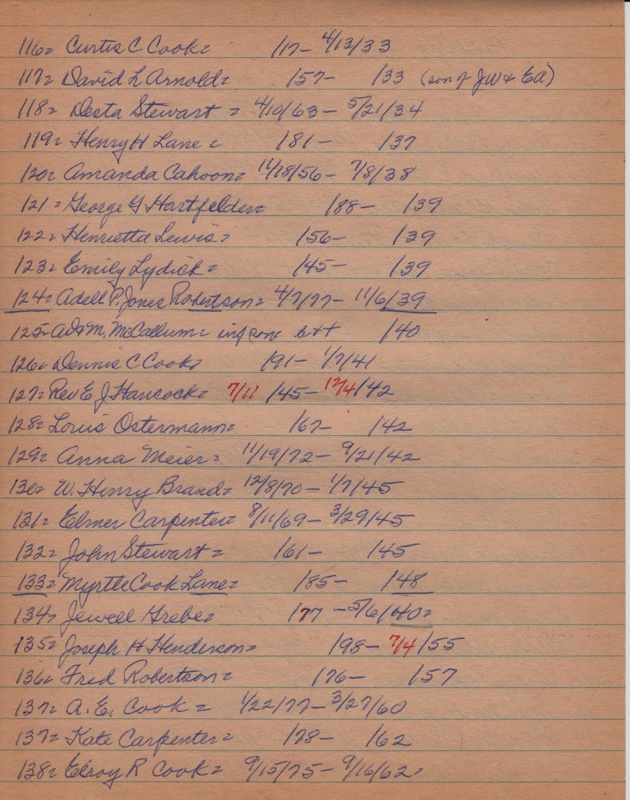 116= Curtis C Cook= /17- 4/13/33
117= David L Arnold= /57- /33 (son of JW & EA)
118= Desta Stewart = 4/10/63- 5/21/34
119= Henry H Lane = /81- /37
120= Amanda Cahoon= 11/18/56- 7/8/38
121= George G Hartfelder= /88- /39
122= Henrietta Lewis= /56- /39
123= Emily Lydick= /45- /39
124= Adell P. Jones Robertson= 4/7/77- 11/6/39
125= McCallum= inf sons b&d /40
126= Dennis C Cook= /91- 1/7/41
127= Rev E J Hancock= 7/11 /45- 12/4/42
128= Louis Ostermann= /67- /42
129= Anna Meier= 11/19/72- 9/21/42
130= W. Henry Brand= 12/8/70- 1/7/45
131= Elmer Carpenter= 8/11/69- 3/29/45
132= John Stewart= /61- /45
133= Myrtle Cook Lane= /85- /48
134= Jewell Grebe= /77 -5/6/40=
135= Joseph H Henderson= /98- 7/4/55
136= Fred Robertson= /76- /57
137= A. E. Cook = 1/22/77- 3/27/60
137= Kate Carpenter= /78- /62
138= Elroy R Cook= 9/15/75- 9/16/62=